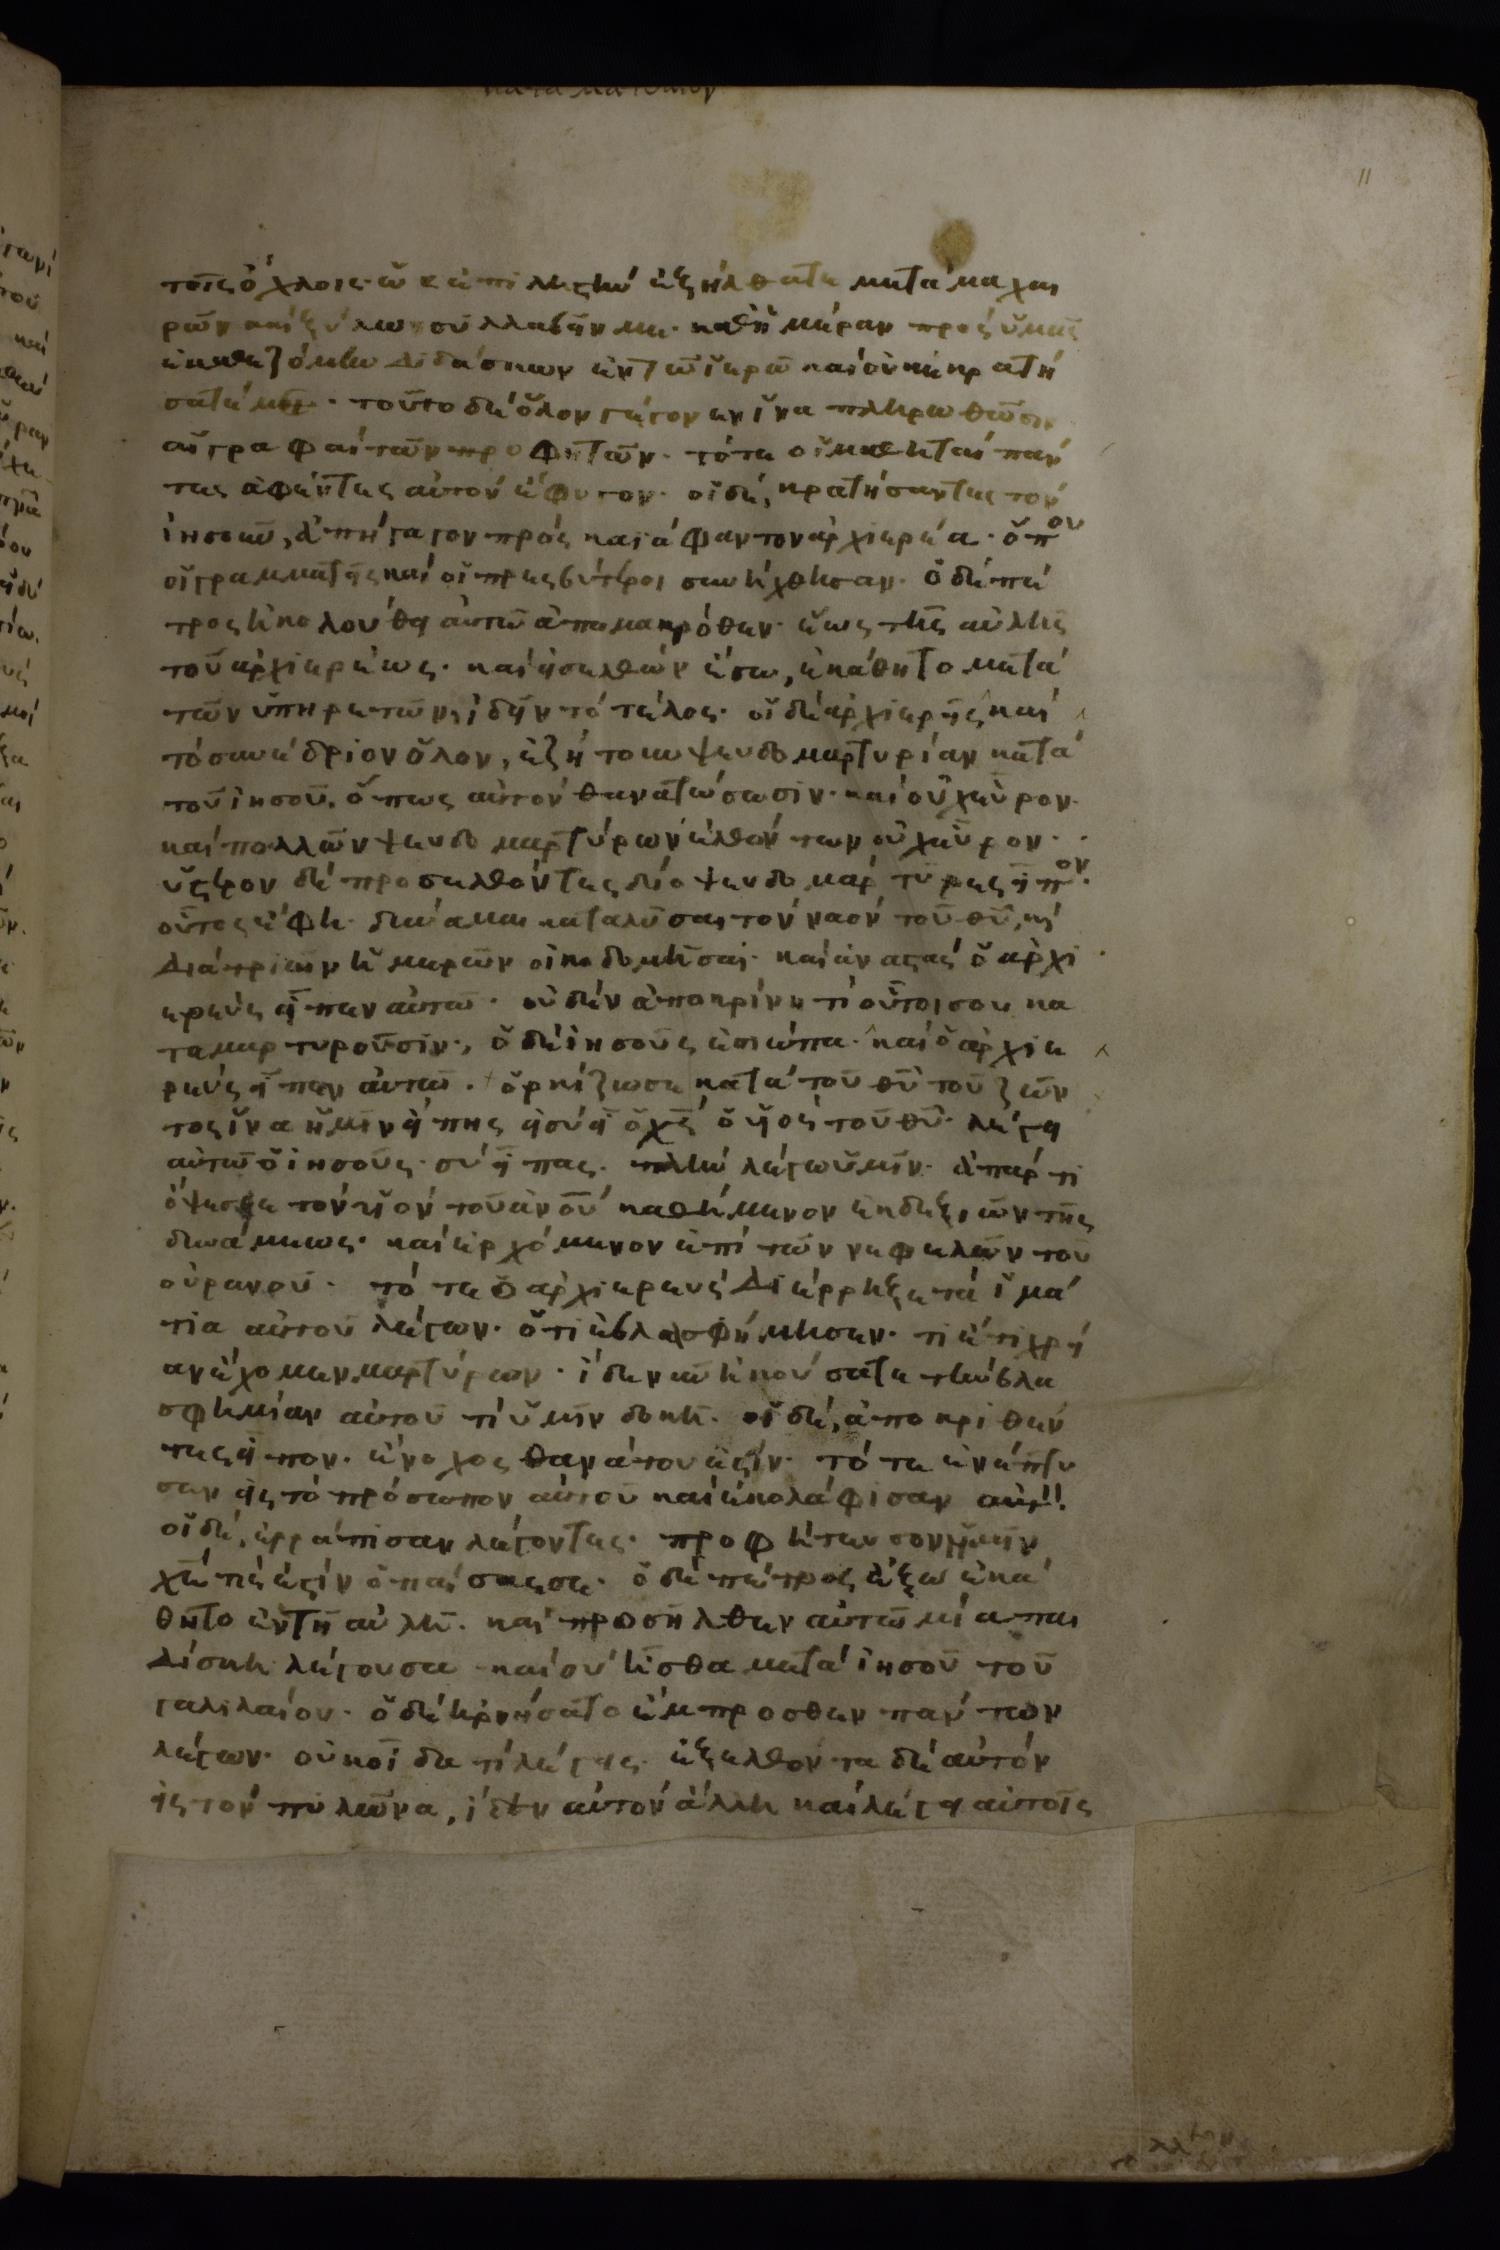 κατα ματθαιον
11
τοῖς ὄχλοις· ὡς ἐπὶ ληστὴν ἐξήλθατε μετὰ μαχαι
ρῶν καὶ ξύλων συλλαβεῖν με· καθ ἡμέραν πρὸς ὑμᾶς
ἐκαθεζόμην διδάσκων ἐν τῶ ἱερῶ καὶ οὐκ ἐκρατή
σατέ με· τοῦτο δὲ ὅλον γέγονεν ἵνα πληρωθῶσιν
αἱ γραφαὶ τῶν προφητῶν· τότε οἱ μαθηταὶ πάν
τες ἀφέντες αὐτὸν ἔφυγον· οἱ δὲ, κρατήσαντες τὸν
ἰησοῦν, ἀπήγαγον πρὸς καϊάφαν τὸν ἀρχιερέα· ὅπου
οἱ γραμματεῖς καὶ οἱ πρεσβύτεροι συνήχθησαν· ὁ δὲ πέ
τρος ἠκολούθει αὐτῶ ἀπο μακρόθεν· ἕως τῆς αὐλῆς
τοῦ ἀρχιερέως· καὶ εἰσελθὼν ἔσω, ἐκάθητο μετὰ
τῶν ὑπηρετῶν, ἰδεῖν τὸ τέλος· οἱ δὲ ἀρχιερεῖς καὶ
τὸ συνέδριον ὅλον, ἐζήτουν ψευδομαρτυρίαν κατὰ
τοῦ ἰησοῦ, ὅπως αὐτὸν θανατώσωσιν· καὶ οὐχ εὗρον·
καὶ πολλῶν ψευδομαρτύρων ἐλθόντων οὐχ εὗρον·
ὕστερον δὲ προσελθόντες δύο ψευδομάρτυρες εἶπον·
οὗτος ἔφη· δύναμαι καταλῦσαι τὸν ναὸν τοῦ θῦ, καὶ
διὰ τριῶν ἡμερῶν οἰκοδομῆσαι· καὶ ἀναστὰς ὁ ἀρχι
ερεὺς εἶπεν αὐτῶ· οὐδὲν ἀποκρίνη τί οὗτοι σου κα
ταμαρτυροῦσιν·, ὁ δὲ ἰησοῦς ἐσιώπα· καὶ ὁ ἀρχιε
ρεὺς εἶπεν αὐτῶ· ὁρκίζω σε κατὰ τοῦ θῦ τοῦ ζῶν
τος ἵνα ἡμῖν εἴπης εἰ σὺ εἶ ὁ χς ὁ υἱὸς τοῦ θῦ· λέγει
αὐτῶ ὁ ἰησοῦς· σὺ εἶπας· πλὴν λέγω ὑμῖν· ἀπάρτι
ὄψεσθε τὸν υἱὸν τοῦ ἀνοῦ καθήμενον ἐκ δεξιῶν τῆς
δυνάμεως· καὶ ἐρχόμενον ἐπὶ τῶν νεφελῶν τοῦ
οὐρανοῦ· τότε ὁ ἀρχιερεὺς διέρρηξε τὰ ἱμά
τια αὐτοῦ λέγων· ὅτι ἐβλασφήμησεν· τί ἔτι χρεί
αν ἔχομεν μαρτύρων· ἴδε νῦν ἠκούσατε τὴν βλα
σφημίαν αὐτοῦ τί ὑμῖν δοκεῖ· οἱ δὲ, ἀποκριθέν
τες εἶπον· ἔνοχος θανάτου ἐστίν· τότε ἐνέπτυ
σαν εἰς τὸ πρόσωπον αὐτοῦ καὶ ἐκολάφισαν αὐτόν·
οἱ δὲ, ἐρράπισαν λέγοντες· προφήτευσον ἡμῖν
χὲ τίς ἐστίν ὁ παίσας σε· ὁ δὲ πέτρος ἔξω ἐκά
θητο ἐν τῆ αὐλῆ· καὶ προσῆλθεν αὐτῶ μία παι
δίσκη λέγουσα· καὶ σὺ ἦσθα μετὰ ἰησοῦ τοῦ
γαλιλαίου· ὁ δὲ ἠρνήσατο ἔμπροσθεν πάντων
λέγων· οὐκ οἶδα τί λέγεις· ἐξελθόντα δὲ αὐτὸν
εἰς τὸν πυλῶνα, ἴδεν αὐτὸν ἄλλη καὶ λέγει αὐτοῖς